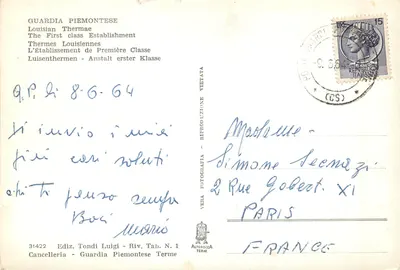 GUARDIA PIEMONTESE
Louisian Thermae
The First class Establishment
Thermes Louisiennes
L'Etablissement de Première Classe
Luisenthermen - Anstalt erster Klasse
G.P. li 8-6-64
Ti invio i miei
più cari saluti
chi ti pensa sempre
Baci
Mario
31422 Ediz. Tondi Luigi - Riv. Tab. N. 1
Cancelleria - Guardia Piemontese Terme
VERA FOTOGRAFIA - RIPRODUZIONE VIETATA
15
(CS)
Madame
Simone
2 Rue Gobert XI
PARIS
FRANCE